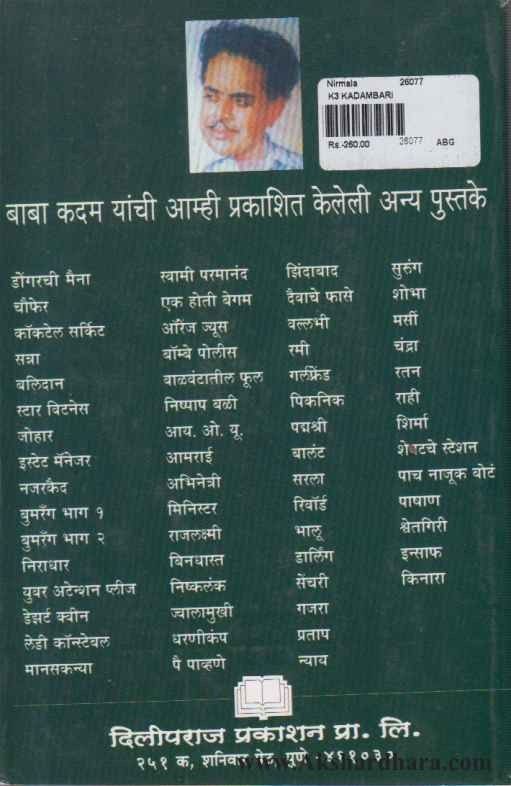 Nirmala 26077
K3 KADAMBARI
Rs.-260.00 26077 ABG
बाबा कदम यांची आम्ही प्रकाशित केलेली अन्य पुस्तके
डोंगरची मैना
चौफेर
कॉकटेल सर्किट
सन्ना
बलिदान
स्टार विटनेस
जोहार
इस्टेट मॅनेजर
नजरकैद
बुमरँग भाग १
बुमरँग भाग २
निराधार
युवर अटेन्शन प्लीज
डेझर्ट क्वीन
लेडी कॉन्स्टेबल
मानसकन्या
स्वामी परमानंद
एक होती बेगम
ऑरेंज ज्यूस
बॉम्बे पोलीस
वाळवंटातील फूल
निष्पाप बळी
आय. ओ. यू.
आमराई
अभिनेत्री
मिनिस्टर
राजलक्ष्मी
बिनधास्त
निष्कलंक
ज्वालामुखी
धरणीकंप
पै पाव्हणे
झिंदाबाद
दैवाचे फासे
वल्लभी
रमी
गर्लफ्रेंड
पिकनिक
पद्मश्री
बालंट
सरला
रिवॉर्ड
भालू
डार्लिंग
सेंचरी
गजरा
प्रताप
न्याय
सुरुंग
शोभा
मर्सी
चंद्रा
रतन
राही
शिर्मा
शेवटचे स्टेशन
पाच नाजूक बोटं
पाषाण
श्वेतगिरी
इन्साफ
किनारा
दिलीपराज प्रकाशन प्रा. लि.
२५१ क, शनिवार पेठ, पुणे ४११०३०
www.Akshardhara.com